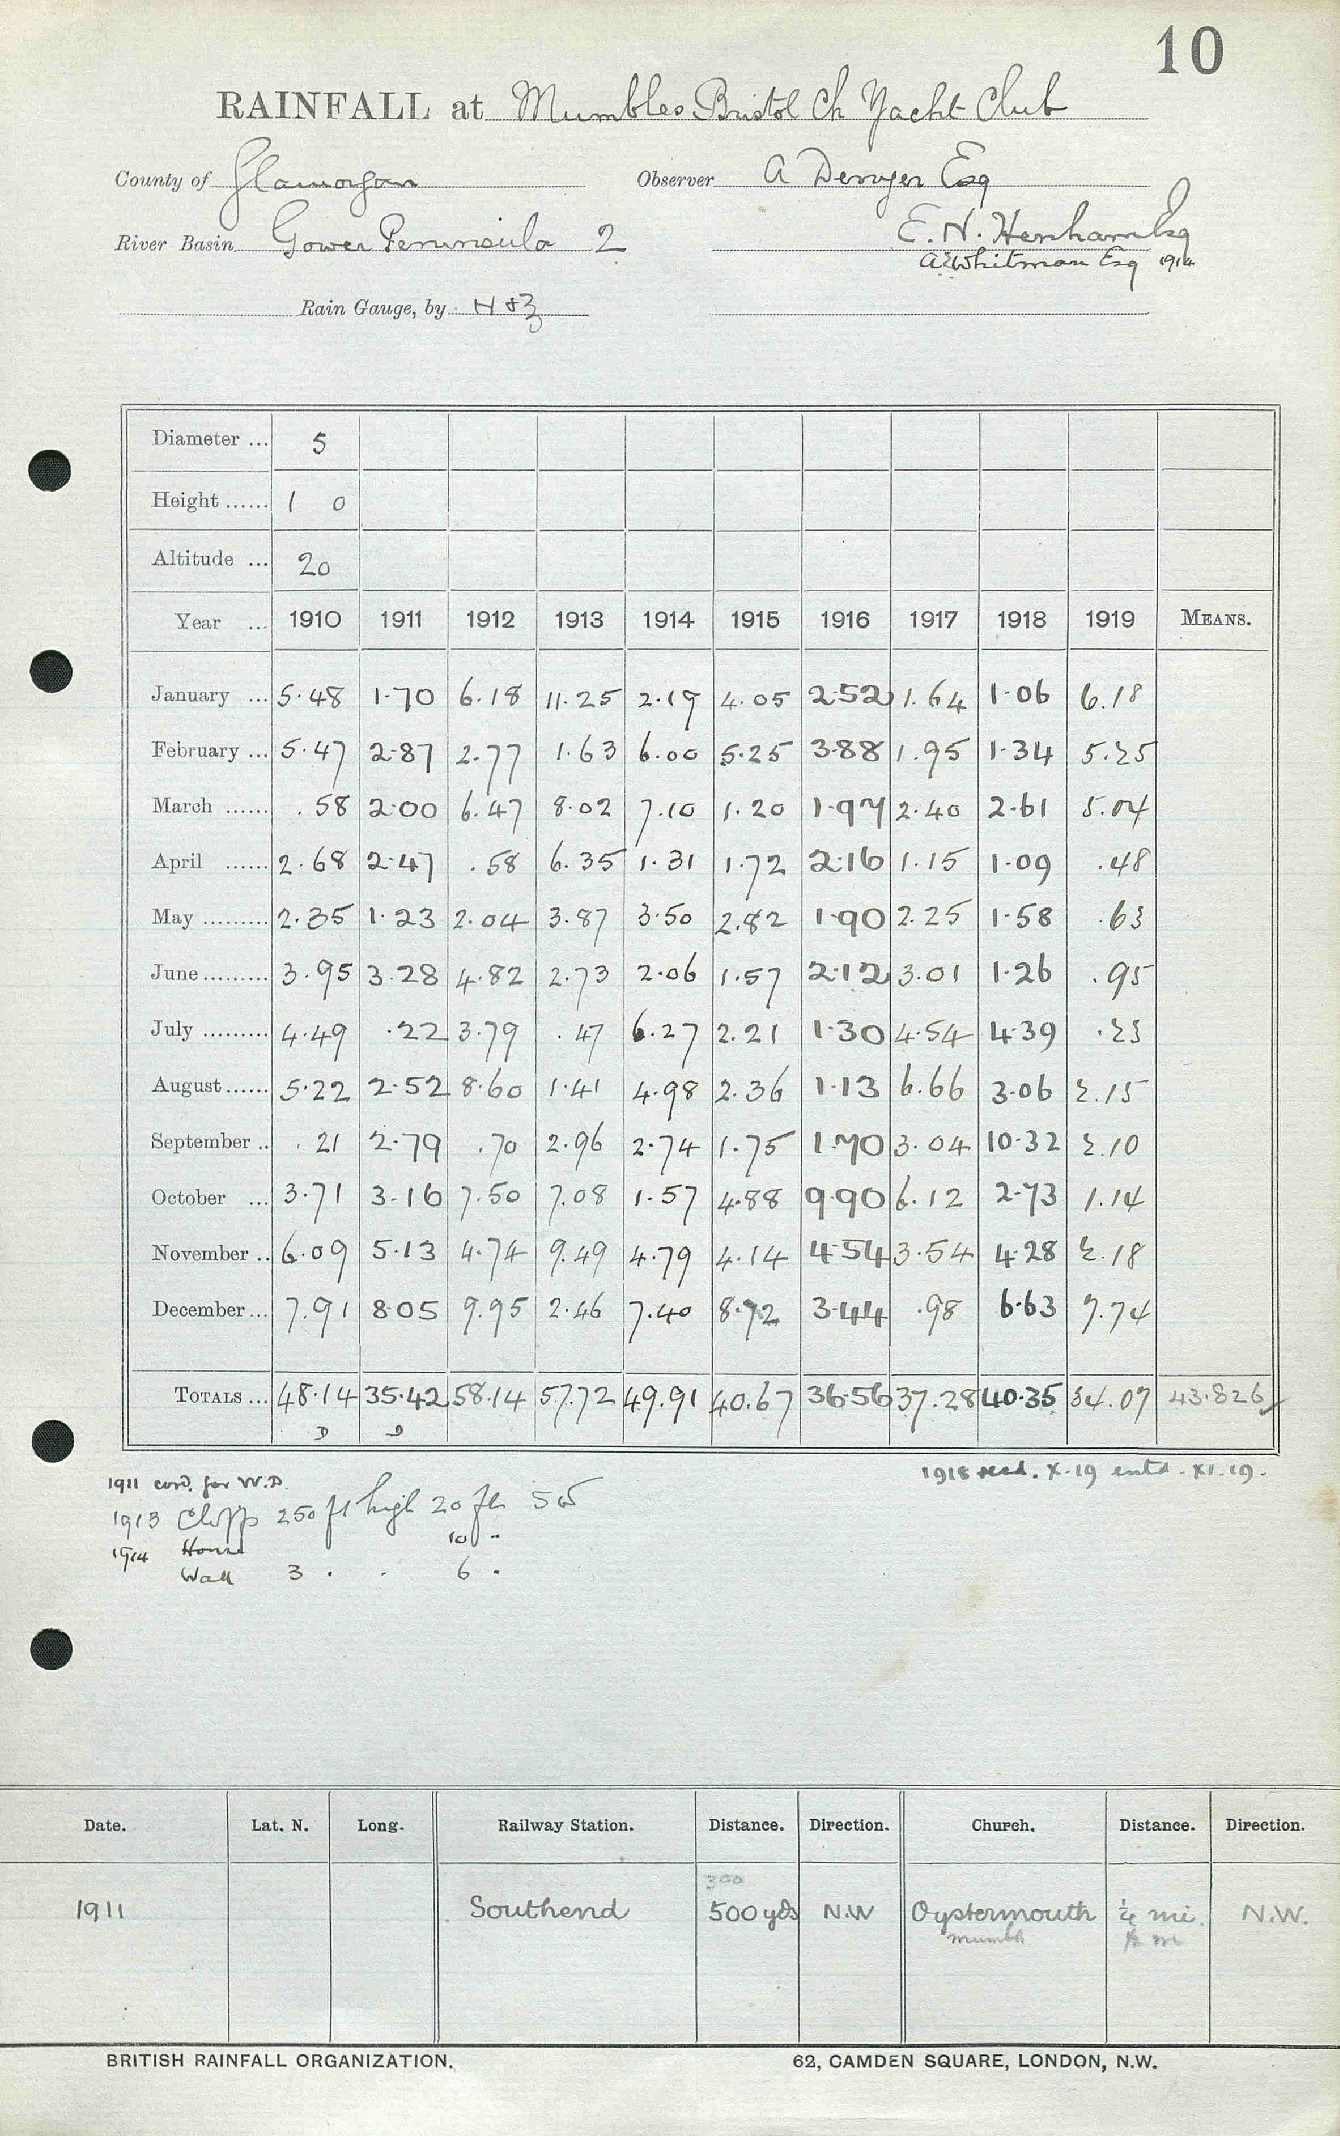 10
RAINFALL at Mumbles Bristol Ch Yacht Club
County of Glamorgan Observer A Esq
River Basin Gower Peninsula 2 E. N. Henham Esq
A E Whitman Esq 1914
Rain Gauge, by
Diameter ... 5
Height ...... 1 0
Altitude ... 20
Year ... 1910 1911 1912 1913 1914 1915 1916 1917 1918 1919 MEANS.
January ... 5.48 1.70 6.18 11.25 2.19 4.05 2.52 1.64 1.06 6.18
February ... 5.47 2.87 2.77 1.63 6.00 5.25 3.88 1.95 1.34 5.25
March ...... .58 2.00 6.47 8.02 7.10 1.20 1.97 2.40 2.61 5.04
April ...... 2.68 2.47 .58 6.35 1.31 1.72 2.16 1.15 1.09 .48
May ......... 2.35 1.23 2.04 3.87 3.50 2.82 1.90 2.25 1.58 .63
June ......... 3.95 3.28 4.82 2.73 2.06 1.57 2.12 3.01 1.26 .95
July ......... 4.49 .22 3.79 .47 6.27 2.21 1.30 4.54 4.39 .23
August ...... 5.22 2.52 8.60 1.41 4.98 2.36 1.13 6.66 3.06 2.15
September .. .21 2.79 .70 2.96 2.74 1.75 1.70 3.04 10.32 2.10
October ... 3.71 3.16 7.50 7.08 1.57 4.88 9.90 6.12 2.73 1.14
November .. 6.09 5.13 4.74 9.49 4.79 4.14 4.54 3.54 4.28 2.18
December ... 7.91 8.05 9.95 2.46 7.40 8.72 3.44 .98 6.63 7.74
TOTALS ... 48.14 35.42 58.14 57.72 49.91 40.67 36.56 37.28 40.35 34.07 43.826
D D
1911 cord. for W.D. 1918 recd. X.19 entd. XI.19.
1913 Cliffs 250 ft high 20 ft SW
1914 House 10 "
Wall 3 . . 6 "
Date. Lat. N. Long. Railway Station. Distance. Direction. Church. Distance. Direction.
300
1911 Southend 500 yds N.W Oystermouth ¼ mi. N.W.
½ m
BRITISH RAINFALL ORGANIZATION. 62, CAMDEN SQUARE, LONDON, N.W.